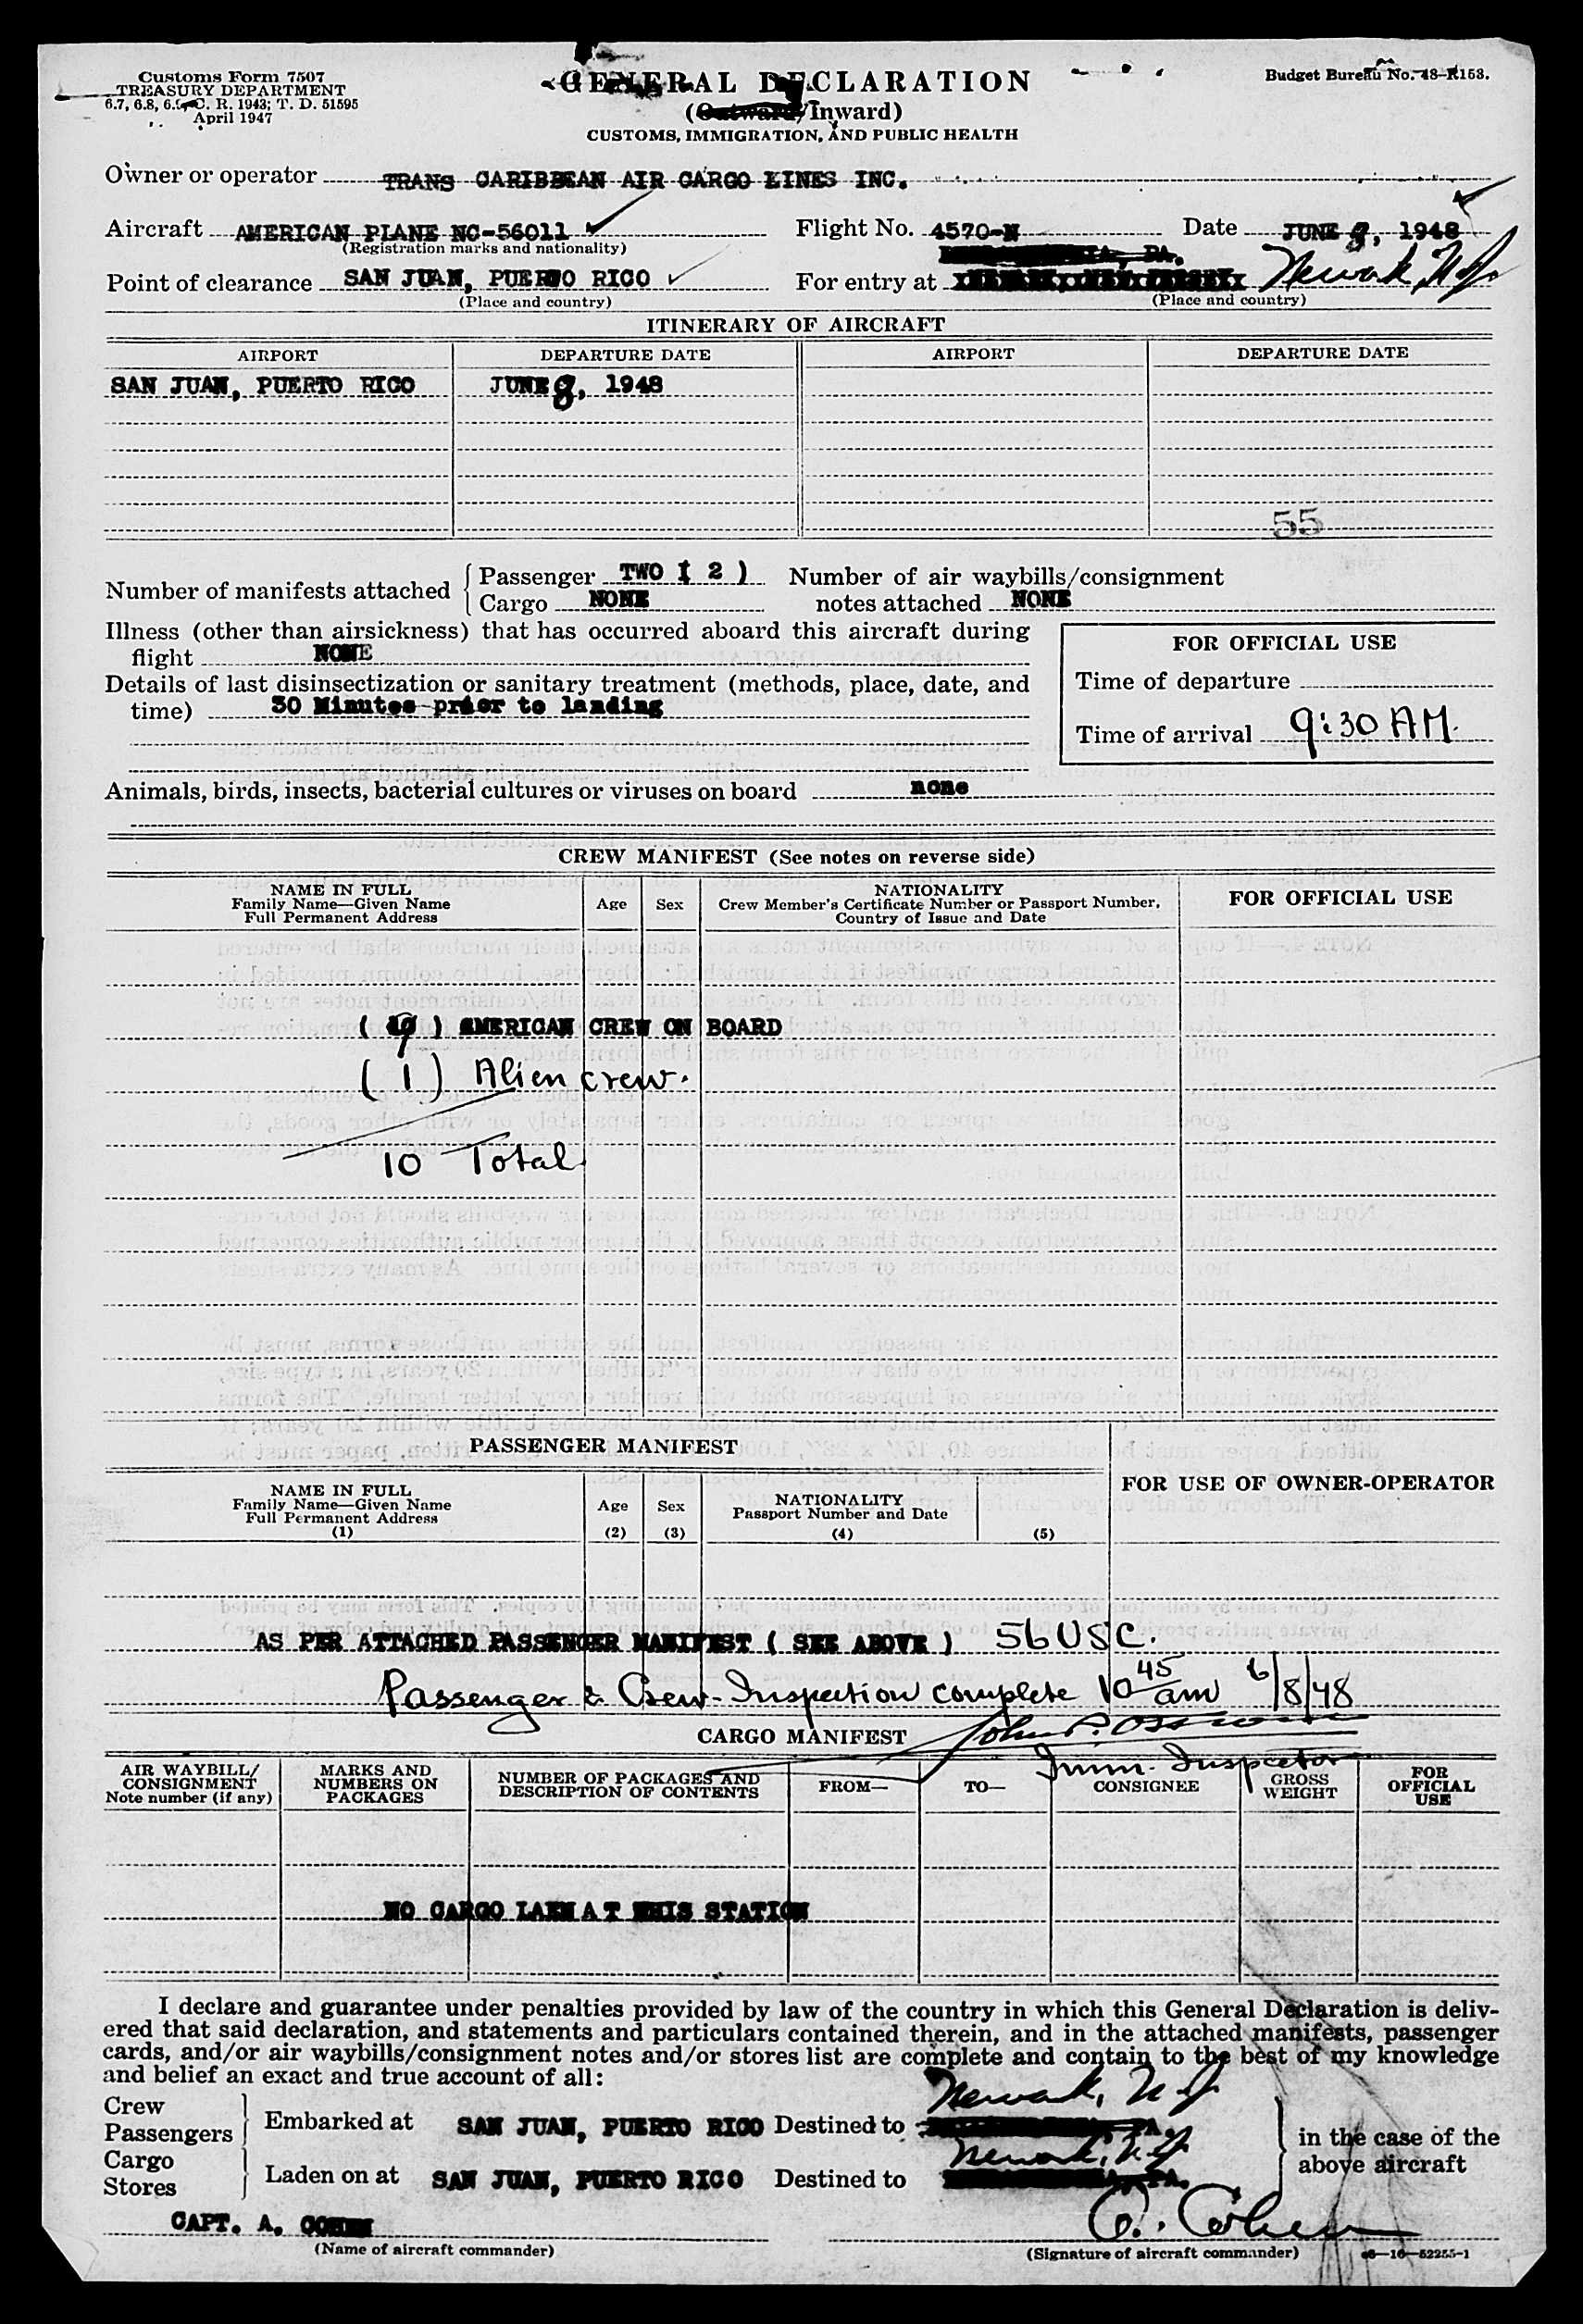 Customs Form 7507
TREASURY DEPARTMENT
6.7, 6.8, 6.9, C. R. 1943; T. D. 51595
April 1947
GENERAL DECLARATION
(Outward/Inward)
CUSTOMS, IMMIGRATION, AND PUBLIC HEALTH
Budget Bureau No. 48-R153.
Owner or operator TRANS CARIBBEAN AIR CARGO LINES INC.
Aircraft AMERICAN PLANE NC-56011 Flight No. 4570-N Date JUNE 8, 1948
(Registration marks and nationality)
PA.
Point of clearance SAN JUAN, PUERTO RICO For entry at Newark, N J
(Place and country) (Place and country)
ITINERARY OF AIRCRAFT
AIRPORT DEPARTURE DATE AIRPORT DEPARTURE DATE
SAN JUAN, PUERTO RICO JUNE 8, 1948
55
Number of manifests attached Passenger TWO ( 2 ) Number of air waybills/consignment
Cargo NONE notes attached NONE
Illness (other than airsickness) that has occurred aboard this aircraft during
flight NONE
Details of last disinsectization or sanitary treatment (methods, place, date, and
time) 30 Minutes prior to landing
FOR OFFICIAL USE
Time of departure
Time of arrival 9:30 AM.
Animals, birds, insects, bacterial cultures or viruses on board none
CREW MANIFEST (See notes on reverse side)
NAME IN FULL
Family Name—Given Name
Full Permanent Address
Age Sex
NATIONALITY
Crew Member's Certificate Number or Passport Number,
Country of Issue and Date
FOR OFFICIAL USE
( 9 ) AMERICAN CREW ON BOARD
( 1 ) Alien crew.
10 Total
PASSENGER MANIFEST
FOR USE OF OWNER-OPERATOR
NAME IN FULL
Family Name—Given Name
Full Permanent Address
(1)
Age
(2)
Sex
(3)
NATIONALITY
Passport Number and Date
(4) (5)
AS PER ATTACHED PASSENGER MANIFEST ( SEE ABOVE ) 56 USC.
Passenger & Crew Inspection complete 10 45 am 6/8/48
CARGO MANIFEST John P.
Imm. Inspector
AIR WAYBILL/
CONSIGNMENT
Note number (if any)
MARKS AND
NUMBERS ON
PACKAGES
NUMBER OF PACKAGES AND
DESCRIPTION OF CONTENTS
FROM— TO— CONSIGNEE
GROSS
WEIGHT
FOR
OFFICIAL
USE
NO CARGO LADEN A T THIS STATION
I declare and guarantee under penalties provided by law of the country in which this General Declaration is deliv-
ered that said declaration, and statements and particulars contained therein, and in the attached manifests, passenger
cards, and/or air waybills/consignment notes and/or stores list are complete and contain to the best of my knowledge
and belief an exact and true account of all:
Newark, N J
Crew
Passengers Embarked at SAN JUAN, PUERTO RICO Destined to PA. in the case of the
Newark, N.J.
Cargo
Stores Laden on at SAN JUAN, PUERTO RICO Destined to PA. above aircraft
CAPT. A. COHEN A. Cohen
(Name of aircraft commander) (Signature of aircraft commander) 16—52255-1